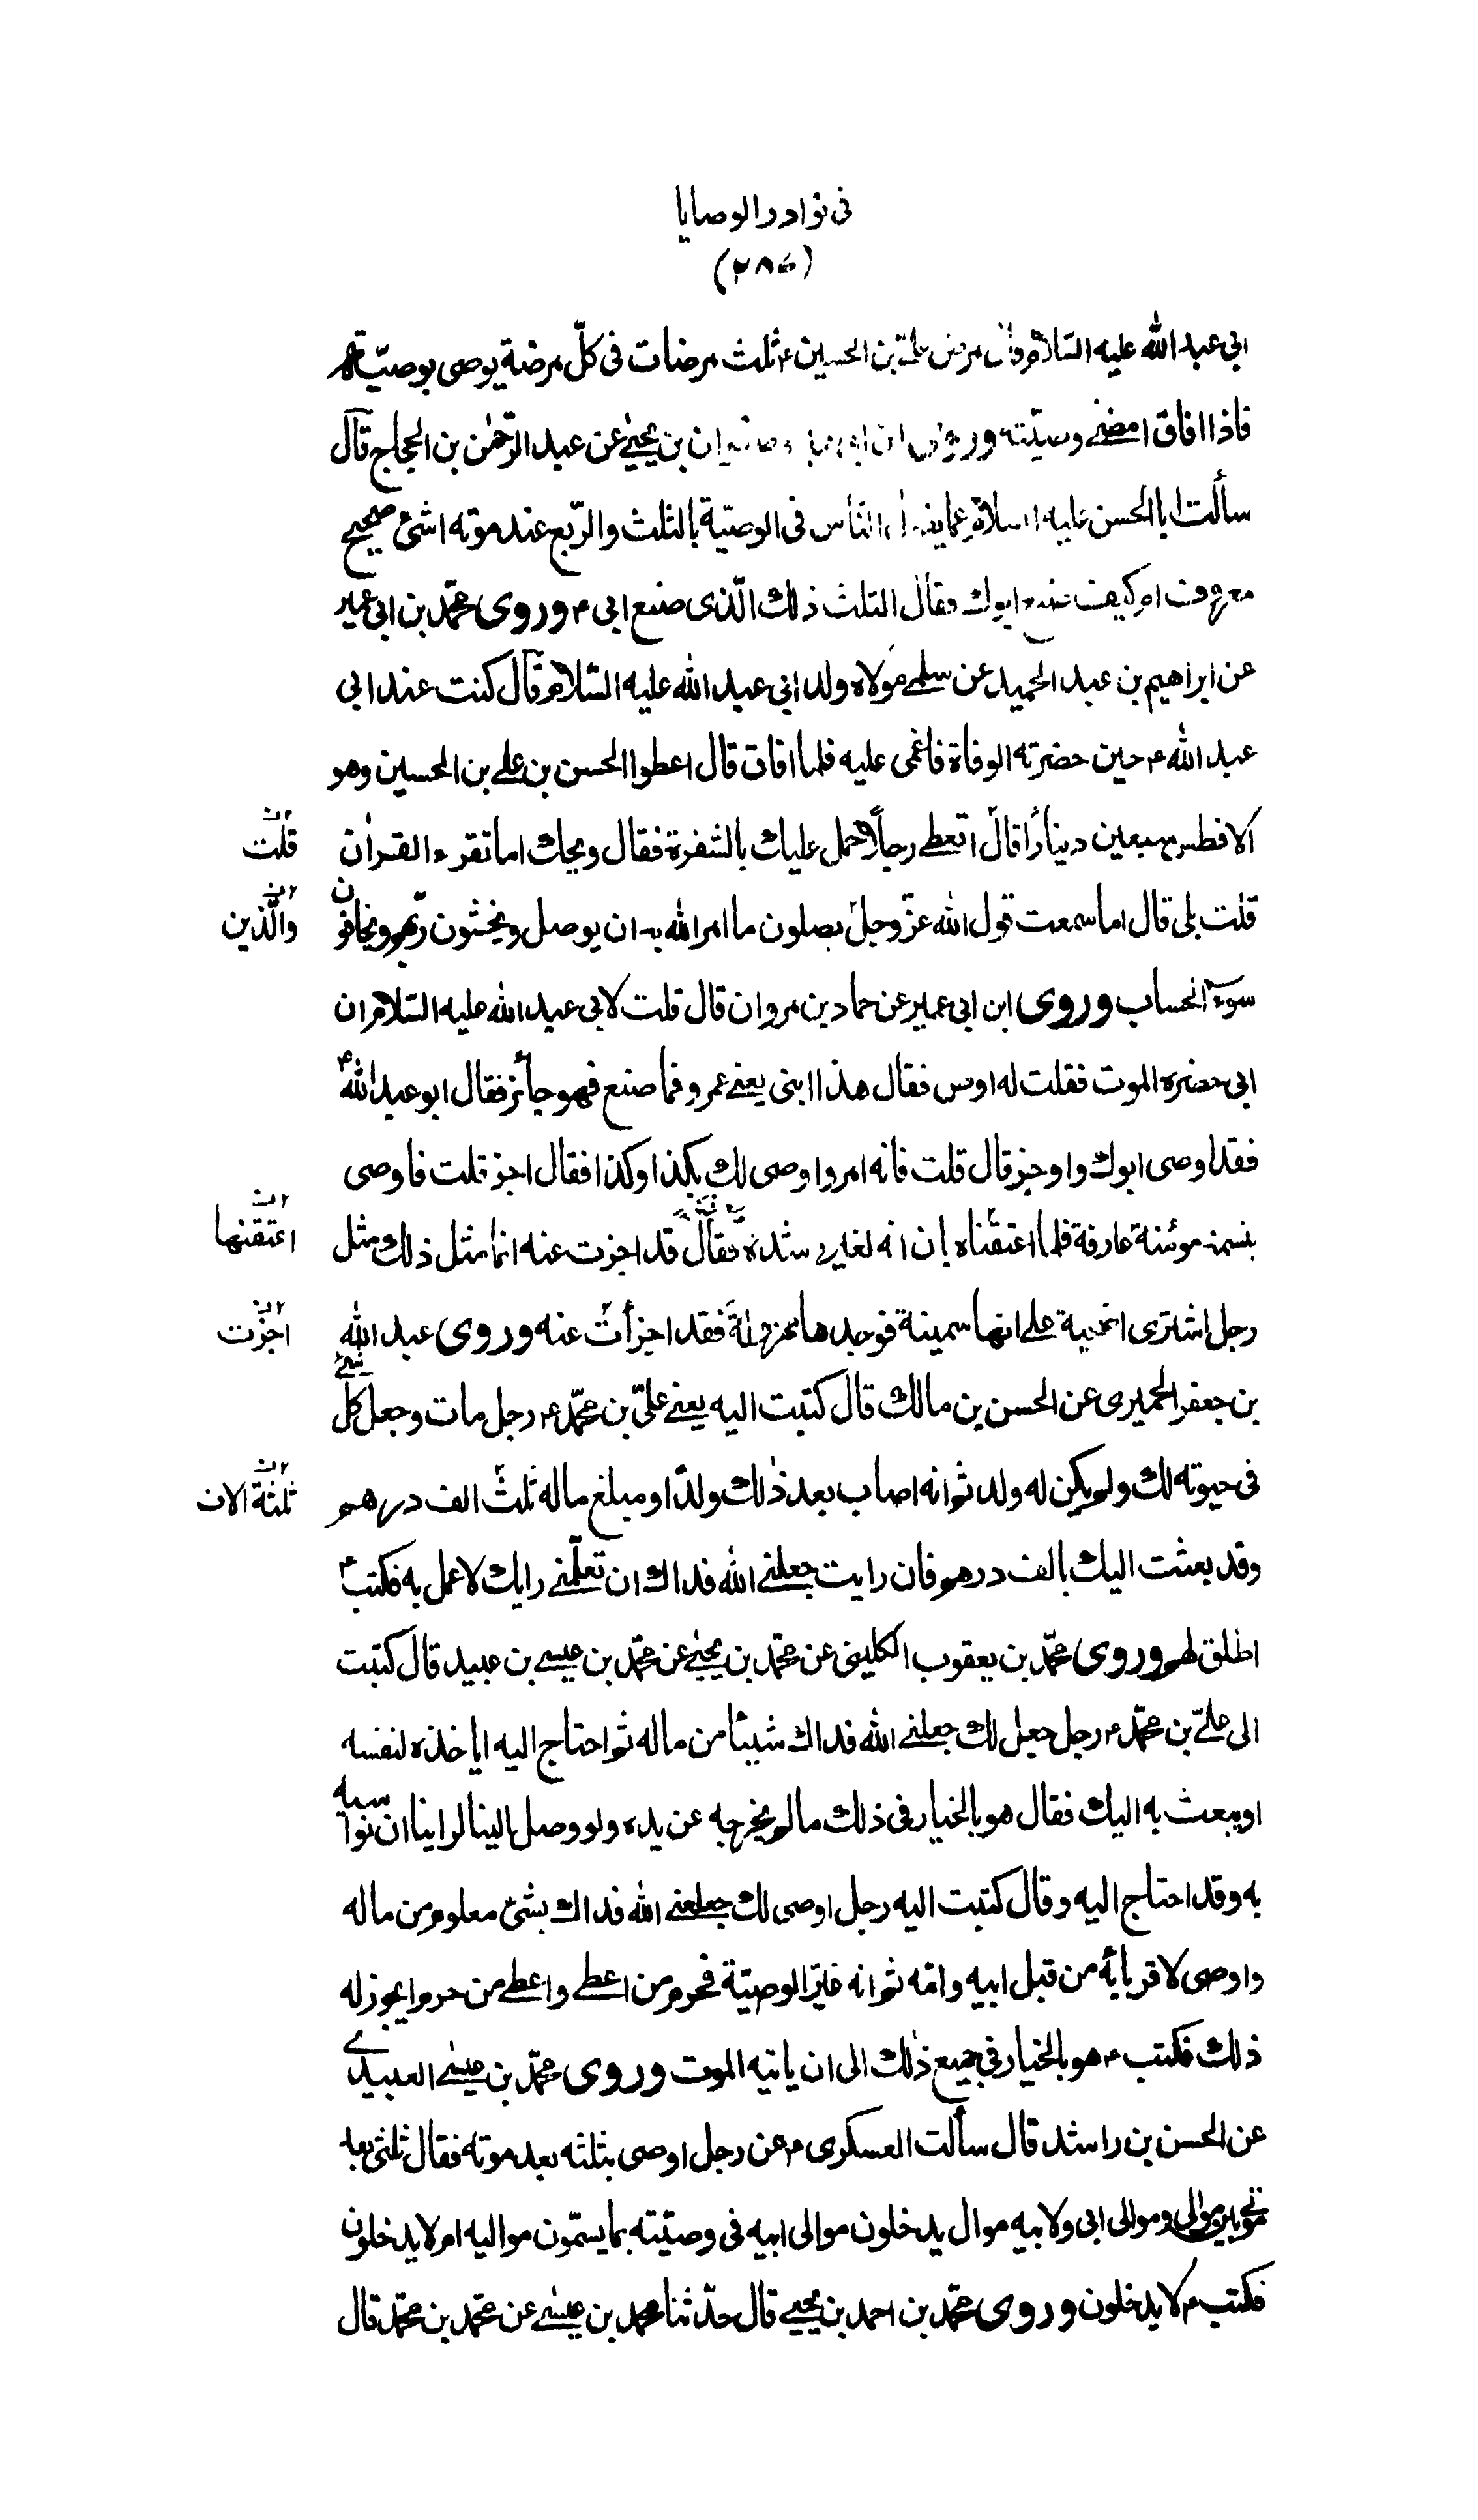 فى نوادر الوصايا
(٢٨٦)
ابى عبد الله عليه السّلام قال مرض علىّ بن الحسين ع ثلث مرضات فى كلّ مرضة يوصى بوصيّة
فاذا افاق امضى وصيّته وروى بن يحيى عن عبد الرّحمٰن بن الحجاج قال
سألت ابا الحسن عليه السلام عما يقول النّاس فى الوصيّة بالثلث والرّبع عند موته اشئ صحيح
معروف ام كيف صنع ابوك فقال الثلث ذلك الّذى صنع ابى ع وروى محمّد بن ابى عمير
عن ابراهيم بن عبد الحميد عن سلمى مولاه ولد ابى عبد الله عليه السّلام قال كنت عند ابى
عبد الله ع حين حضرته الوفاة فاغمى عليه فلما افاق قال اعطوا الحسن بن على بن الحسين وهو
الافطس سبعين دينارًا قال اتعطى رجلًا حمل عليك بالشفرة فقال ويحك اما تقرء القراٰن
قلت
قلت بلى قال اما سمعت قول الله عزّ وجلّ يصلون ما امر الله به ان يوصل ويخشون ربّهم ويخافون
والّذين
سوء الحساب وروى ابن ابى عمير عن حماد بن مروان قال قلت لابى عبد الله عليه السّلام ان
ابى حضره الموت فقلت له اوص فقال هذا ابنى يعنى عمر و فما صنع فهو جائز فقال ابو عبد الله ع
فقد اوصى ابوك واوجز قال قلت فانه امر واوصى لك بكذا وكذا فقال اجز قلت فاوصى
بنسمة مؤمنة عارفة فلما اعتقناه بان انه لغير رشدة فقال قد اجزت عنه انما مثل ذلك مثل
اعتقنها
رجل اشترى اضحية على انها سمينة فوجدها مهزولة فقد اجزأت عنه وروى عبد الله
اجزت
بن جعفر الحميرى عن الحسن بن مالك قال كتبت اليه يعنى علىّ بن محمّد ع رجل مات وجعل كل شئ
فى حيوته لك ولم يكن له ولد ثم انه اصاب بعد ذلك ولدًا ومبلغ ماله ثلث الف درهم
ثلثة الاف
وقد بعثت اليك بالف درهم فان رايت جعلنى الله فداك ان تعلّمنى رايك لاعمل به فكتب ع
اطلق لهم وروى محمّد بن يعقوب الكلينى عن محمّد بن يحيى عن محمّد بن عيسى بن عبيد قال كتبت
الى علىّ بن محمّد ع رجل جعل لك جعلنى الله فداك شيئا من ماله ثم احتاج اليه اياخذه لنفسه
او يبعث به اليك فقال هو بالخيار فى ذلك ما لم يخرجه عن يده ولو وصل الينا لراينا ان نواسيه
به وقد احتاج اليه وقال كتبت اليه رجل اوصى لك جعلنى الله فداك بشئ معلوم من ماله
واوصى لاقربائه من قبل ابيه وامّه ثم انه غيّر الوصيّة فحرم من اعطى واعطى من حرم ايجوز له
ذلك فكتب ع هو بالخيار فى جميع ذلك الى ان ياتيه الموت وروى محمّد بن عيسى العبيدى
عن الحسن بن راشد قال سألت العسكرى ع عن رجل اوصى بثلثه بعد موته فقال ثلثى بعد
موتى بين موالى وموالى ابى ولابيه موال يدخلون موالى ابيه فى وصيّته بما يسمّون مواليه ام لا يدخلون
فكتب ع لا يدخلون وروى محمّد بن احمد بن يحيى قال حدّثنا محمد بن عيسى عن محمّد بن محمّد قال